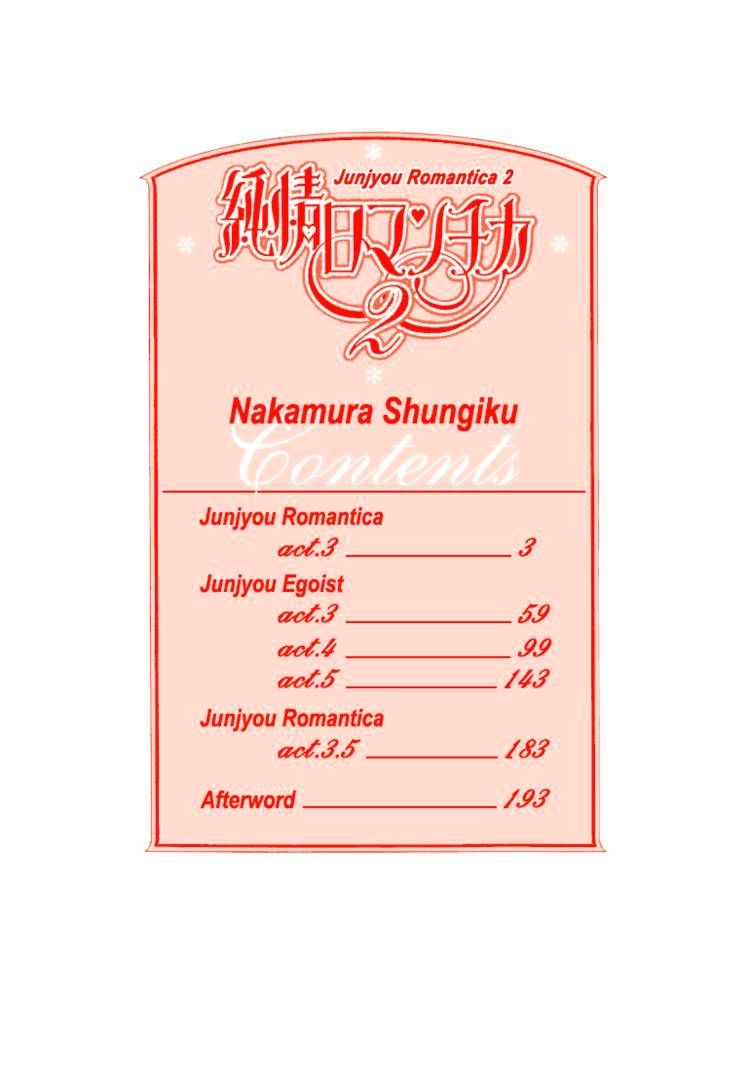 Junjyou Romantica 2
純情ロマンチカ
2
Nakamura Shungiku
Contents
Junjyou Romantica
act.3 3
Junjyou Egoist
act.3 59
act.4 99
act.5 143
Junjyou Romantica
act.3.5 183
Afterword 193